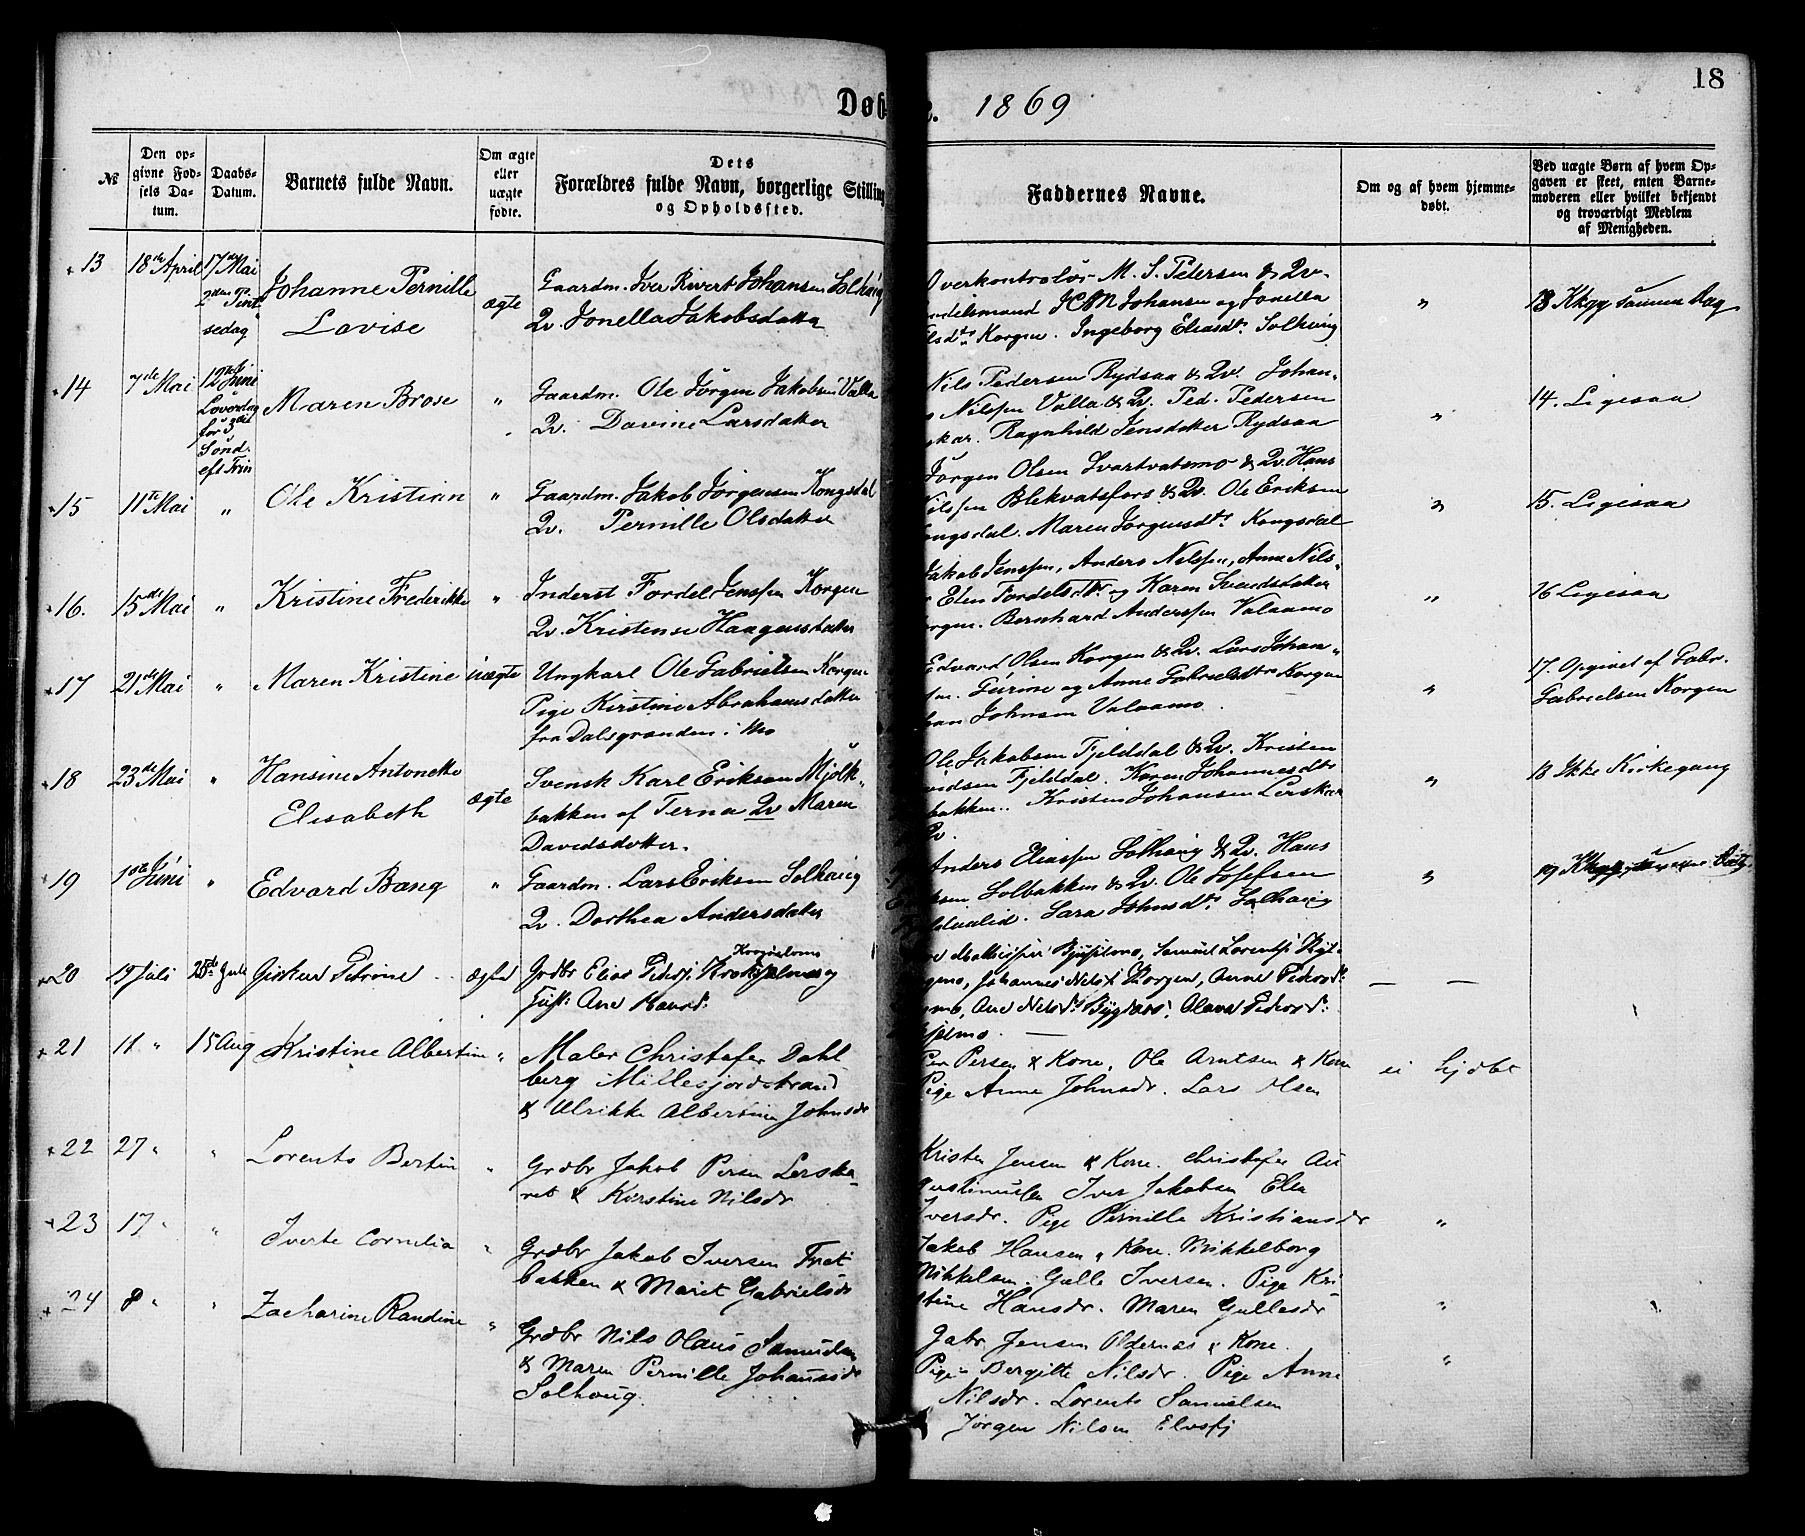 18
Døb
1869
№
Den opgivne Fødsels Datum.
Daabs-Datum.
Barnets fulde Navn.
Om ægte eller uægte fødte.
Dets Forældres fulde Navn, borgerlige Stilling og Opholdssted.
Faddernes Navne.
Om og af hvem hjemmedøbt.
Ved uægte Børn af hvem Opgaven er skeet, enten Barnemoderen eller hvilket bekjendt og troværdigt Medlem af Menigheden.
13 18de April 17de Mai 2den Pintsedag
Johanne Pernille
Lovise
ægte
Gaardm. Iver Rivert Johansen Solhaug
Qv. Jonella Jakobsdatter
Overkontrolør M. S. Petersen & Qv.
Johansen og Jonella
Korgen. Ingeborg Eliasdtr Solhaug
"
13 Kkgg samme Dag
14 7de Mai 12te Juni Løverdag før 3 Sønd. eft Trin
Maren Brose
"
Gaardm. Ole Jørgen Jakobsen Valla
Qv. Davine Larsdatter
Nils Pedersen Rydsaa & Qv. Johan
Nilssen Valla & Qv. Ped. Pedersen
Ragnhild Jensdatter Rydsaa
"
14. Ligesaa
15 11te Mai "
Ole Kristian
"
Gaardm. Jakob Jørgensen Kongsdal
Qv. Pernille Olsdatter
Jørgen Olsen Svartvatsmo & Qv. Hans
Nilssen Blekvatsfors & Qv. Ole Eriksen
Kongsdal. Maren Jørgensdtr Kongsdal
"
15. Ligesaa
16. 15de Mai "
Kristine Frederikke
"
Inderst Fordel Jenssen Korgen
Qv. Kristense Haagensdatter
Jakob Jenssen, Anders Nilssen, Anne Nils-
Elen Fordelsdtr og Karen Svendsdatter
Korgen. Bernhard Anderssen Valaamo
"
16 Ligesaa
17 21de Mai "
Maren Kristine
uægte
Ungkarl Ole Gabrielsen Korgen
Pige Kirstine Abrahamsdatter
fra Dalsgrænden i Mo
Edvard Olsen Korgen & Qv. Lars Johan
Gurine og Anne Gabrielsdtr Korgen
Johnsen Valaamo.
"
17. Opgivet af Fabr.
Gabrielsen Korgen
18 23de Mai "
Hansine Antonette
Elisabeth
ægte
Svensk Karl Eriksen Mjølk-
bakken af Terna Qv Maren
Davidsdatter.
Ole Jakobsen Fjelddal & Qv. Kristen
Davidsen Fjelddal. Karen Johannesdtr
bakken. Kristen Johansen Lerskar
Qv.
"
18 Ikke Kirkegang
19 1ste Juni "
Edvard Bang
"
Gaardm. Lars Eriksen Solhaug
Qv. Dorthea Andersdatter
Anders Eliassen Solhaug & Qv. Hans
Solbakken & Qv. Ole Josefsen
Sara Johnsdtr Solhaug
"
19 Kkgg samme Dag
20 19 Juli
Petrine
ægte
Grdbr Elias Pedrs. og
Hust: Ane
Samuel Lorents:
Johannes Nils: Korgen, Anne Pedersd:
Ane Nilsd: Olava Pedersd:
21 11 " 15 Aug
Kristine Albertine
"
Maler Christofer Dahl
berg Millesjordstrand
& Ulrikke Albertine Johnsdr
Per Persen & Kone, Ole Arntsen & Kone
Pige Anne Johnsdr. Lars Olsen
ei hjdbt
22 27 " "
Lorents Bertin
"
Grdbr Jakob Persen Lerska-
ret & Kirstine Nilsdr
Kristen Jensen & Kone. Christofer Au
Iver Jakobsen Elen
Iversdr. Pige Pernille Kristiansdr
"
23 17 " "
Iverte Cornelia
"
Grdbr Jakob Iversen Fret
bakken & Maret Gabrielsdr
Jakob Hansen & Kone. Mikkelborg
Mikkelsen. Gulle Iversen. Pige Kri-
stine Hansdr. Maren Gullesdr
"
24 8 " "
Zacharine Randine
"
Grdbr Nils Olaus Samuelsen
& Maren Pernille Johansdr
Solhoug.
Gabr Jensen Oldernæs & Kone.
Pige Bergitte Nilsdr. Pige Anne
Nilsdr. Lorents Samuelsen
Jørgen Nilsen Elvsfj
"